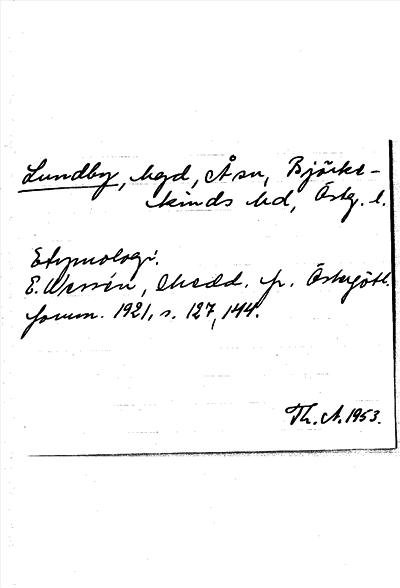 Lundby, hgd, Å sn, Björke-
kinds hd, Östg. l.
Etymologi.
E. Wessén, Medd. fr. Östergötl.
fornm. 1921, s. 127, 144.
Th. A. 1953.